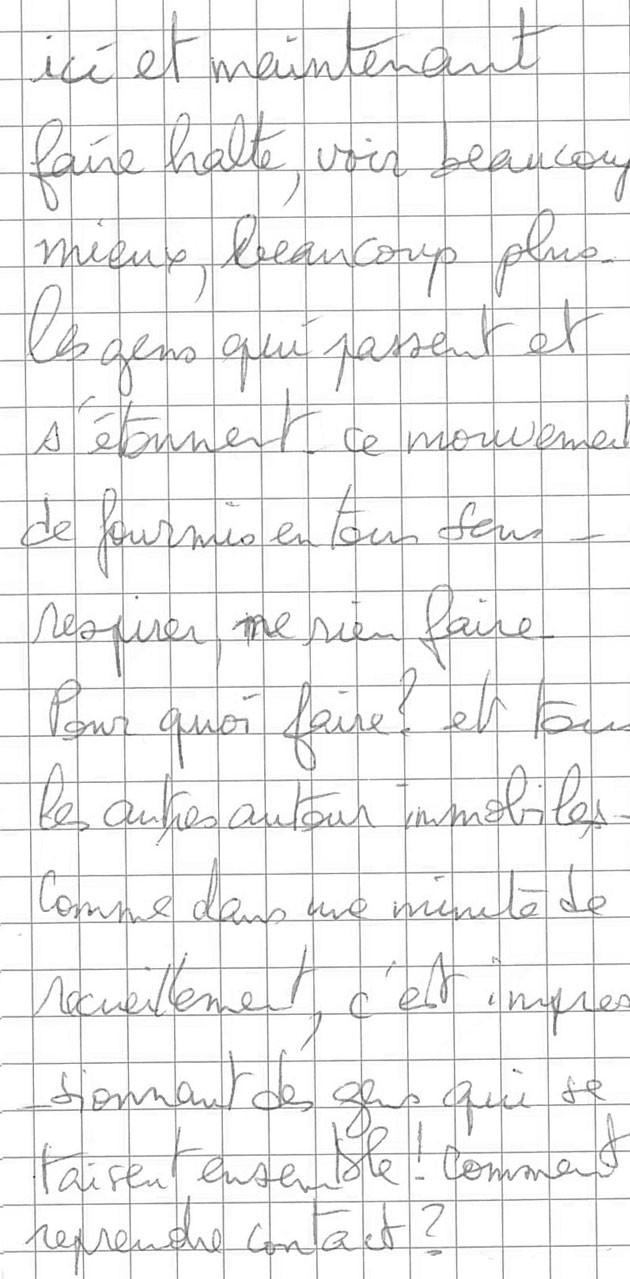 ici et maintenant
faire halte, voir beaucoup
mieux, beaucoup plus.
les gens qui passent et
s'étonnent. ce mouvement
de fourmis en tous sens -
respirer, ne rien faire
Pour quoi faire? et tous
les autres autour immobiles -
Comme dans une minute de
recueillement, c'est impres
-sionnant des gens qui se
taisent ensemble! Comment
reprendre contact?